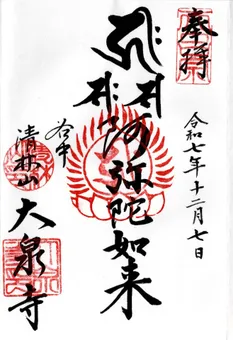 奉拝
令和七年十二月七日
阿弥陀如来
谷中
清林山
大泉寺